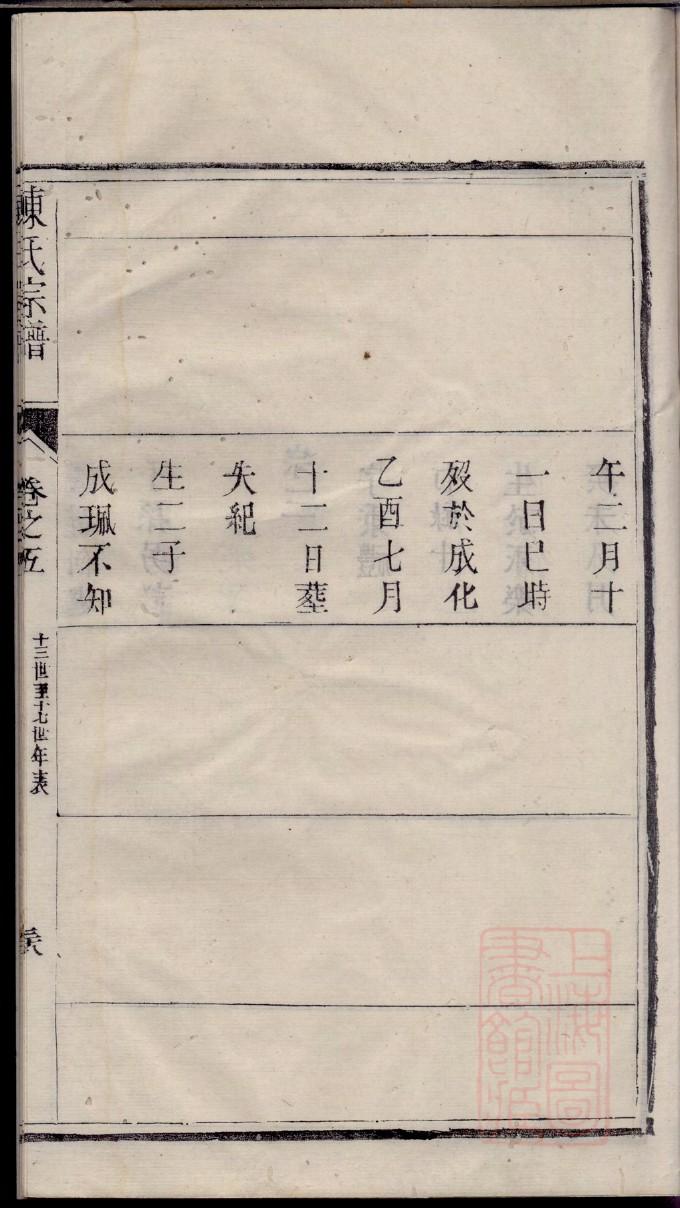 午三月十
一日巳時
歿於成化
乙酉七月
十二日塟
失紀
生二子
成珮不知
陳氏宗譜
卷之五
十三世至十七世年表
上海圖書館藏